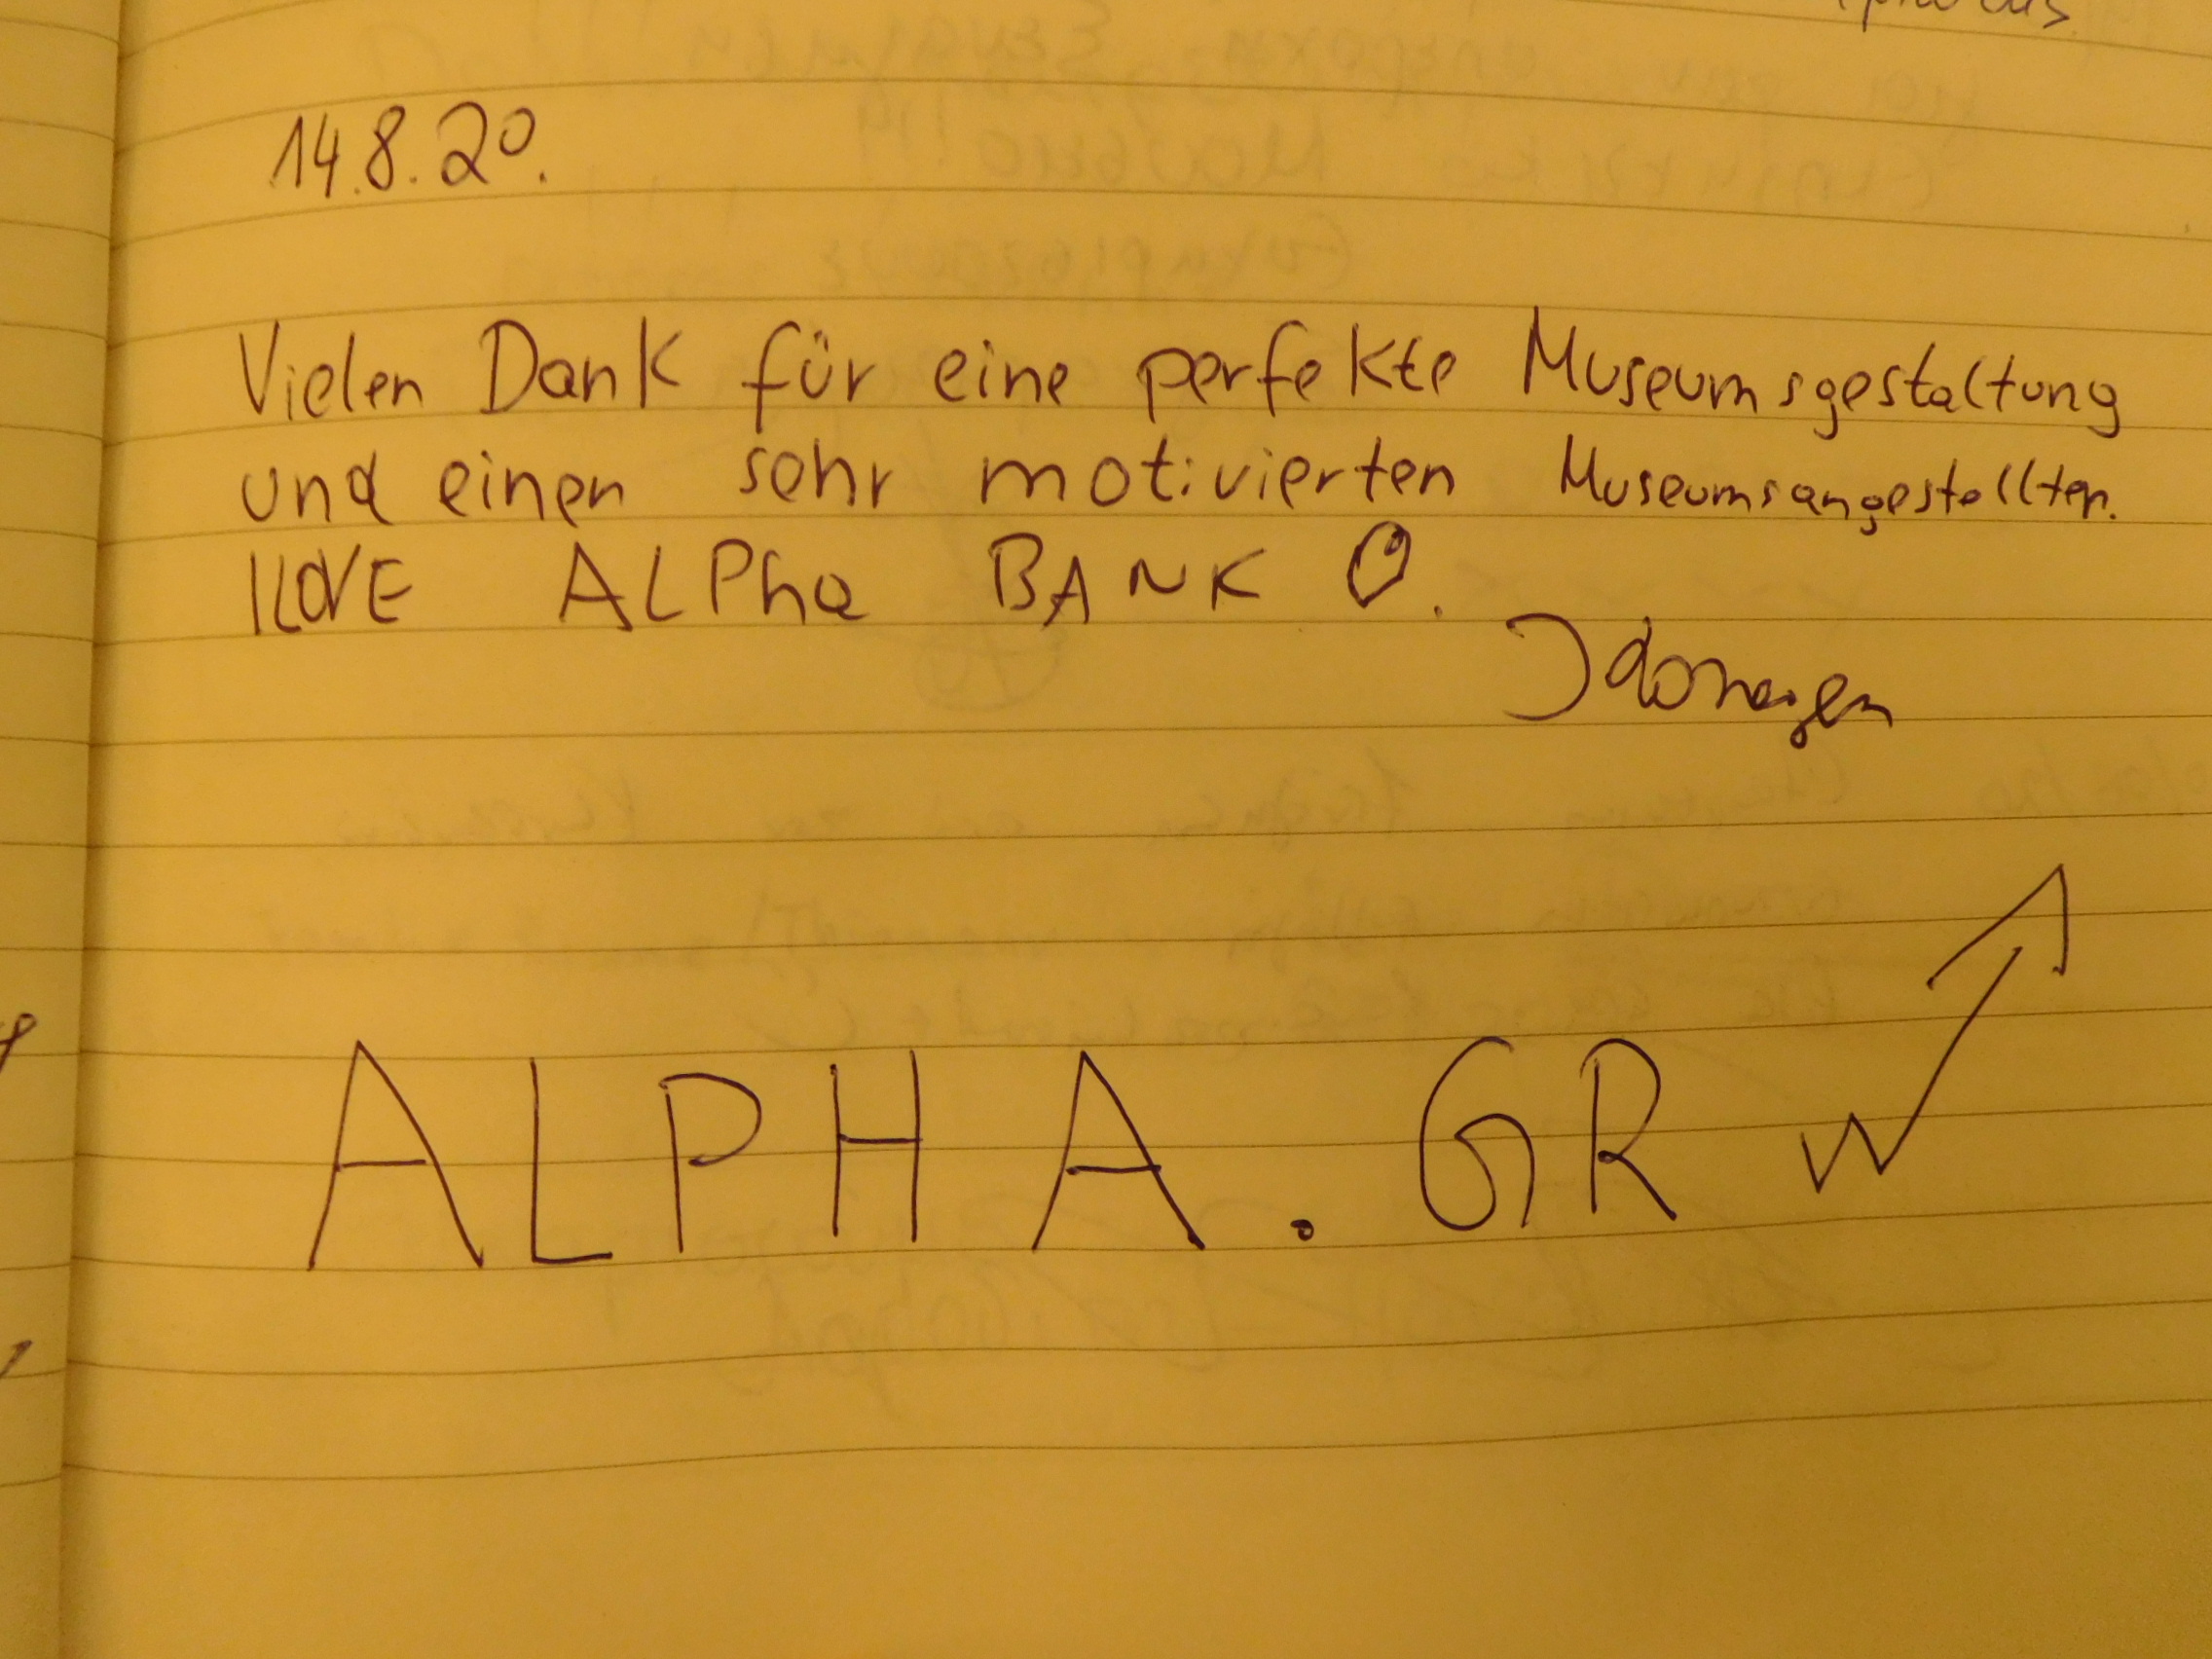 14.8.20.
Vielen Dank für eine perfekte Museumsgestaltung
und einen sehr motivierten Museumsangestellten.
I LOVE ALPha BANK
ALPHA.GR